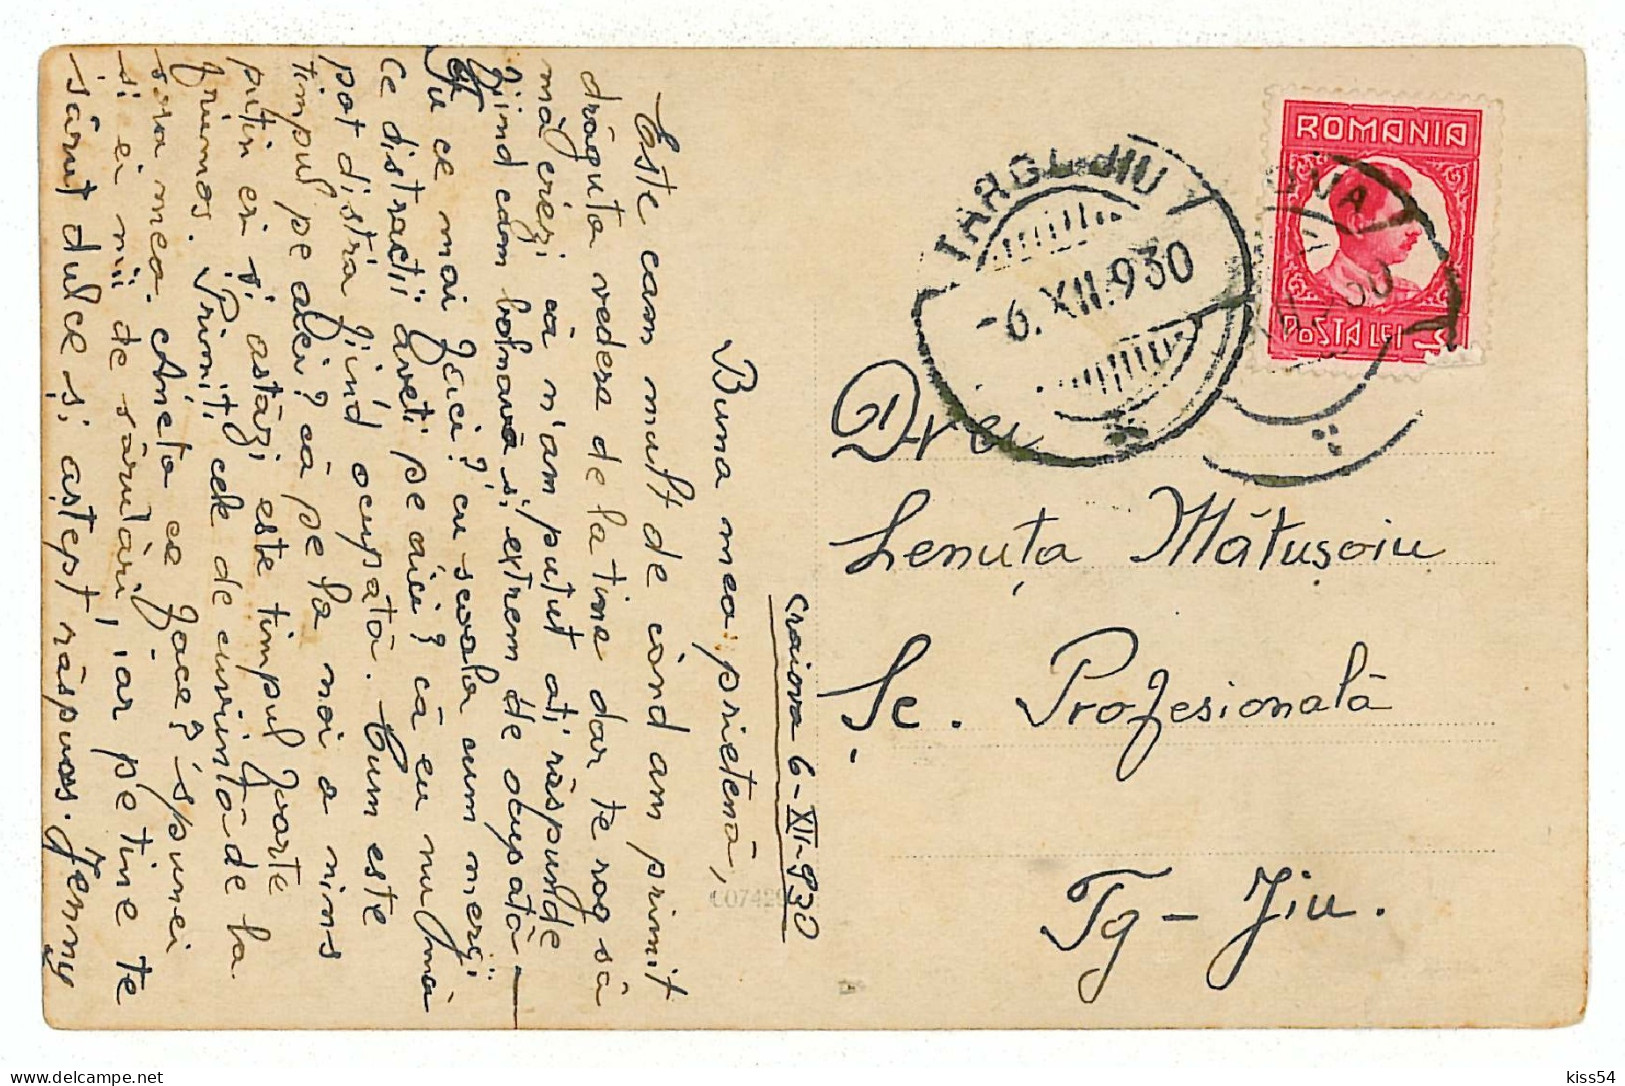 Craiova 6-XII-930
Buna mea prietenă,
Este cam mult de când am primit
drăguța vedere de la tine dar te rog să
mă crezi că n'am putut a-ți răspunde
fiind cam bolnavă și extrem de ocupată
Tu ce mai faci? cu școala cum mergi
Ce distracții aveți pe aici? că eu nu mă
pot distra fiind ocupată. Cum este
timpul pe aici? că pe la noi a nins
puțin eri și astăzi este timpul foarte
frumos. Primiți cele de cuviință de la
sora mea. Aneta ce face? spunei
și ei mii de sărutări, iar pe tine te
sărut dulce și aștept răspuns. Jenny
Drei
Lenuța Mătușoiu
Șc. Profesională
Tg-Jiu.
TARGL JIU
-6.XII.930
ROMANIA
POSTA LEI
C0742
kiss54